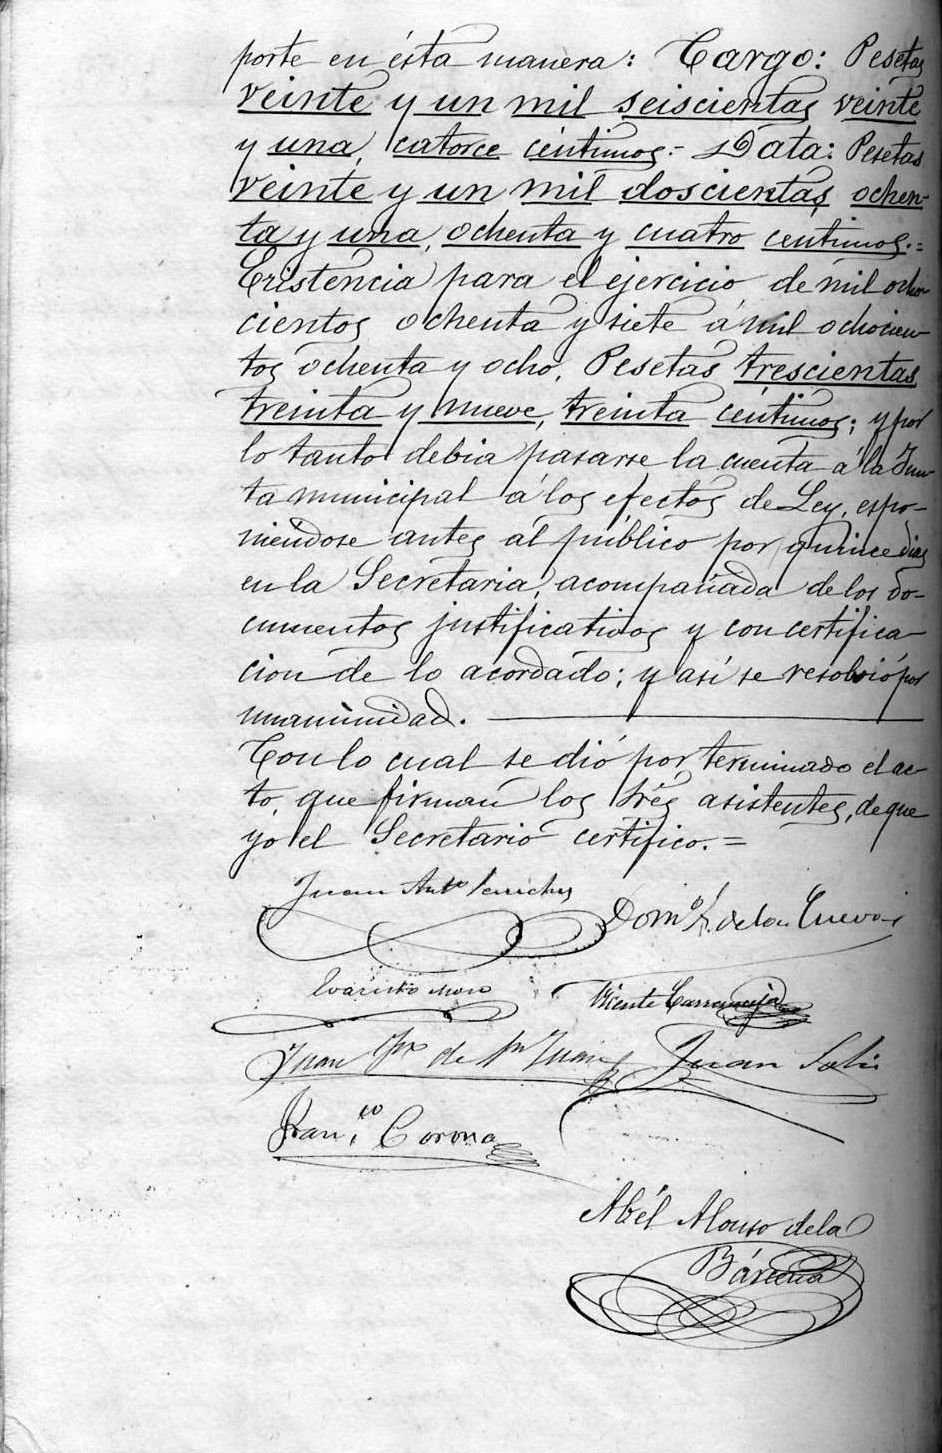 porte en ésta manera: Cargo: Pesetas
veinte y un mil seiscientas veinte
y una, catorce céntimos.= Data: Pesetas
veinte y un mil doscientas ochen-
ta y una, ochenta y cuatro centimos.=
Existencia para el ejercicio de mil ocho-
cientos ochenta y siete á mil ochocien-
tos ochenta y ocho, Pesetas trescientas
treinta y nueve, treinta céntimos; y por
lo tanto debia pasarse la cuenta á la Jun-
ta municipal á los efectos de Ley, espo-
niéndose antes al público por quince dias
en la Secretaria, acompañada de los do-
cumentos justificativos y con certifica-
cion de lo acordado; y así se resolvió por
unanimidad.
Con lo cual se dió por terminado el ac-
to, que firman los Sres asistentes, de que
yo el Secretario certifico.=
Juan Antº Sanchez
Domº F. de la Cueva
Evaristo Moro
Vicente Carranceja
Juan Gº de Sn Juan
Juan Solis
Franco Corona
Abél Alonso de la
Bárcena